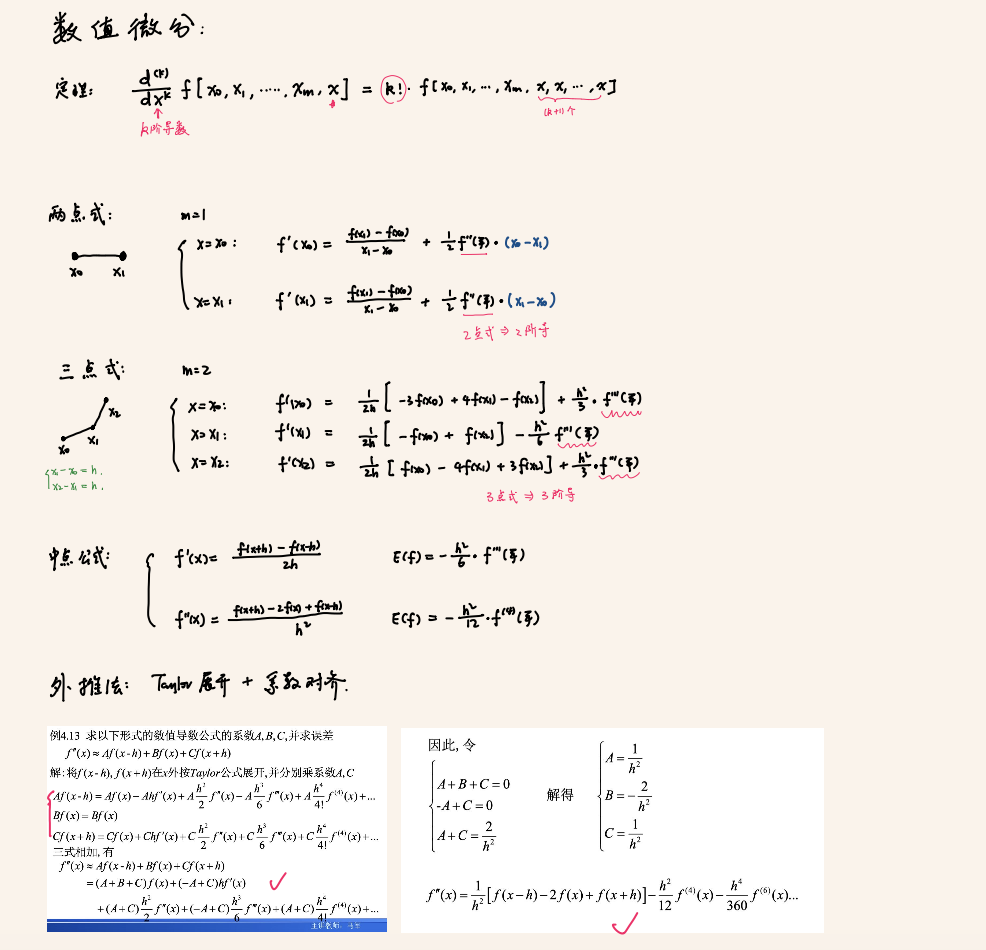 数值微分:
定理: d^(k)/dx^k f[x₀, x₁, ⋯⋯, xₘ, x] = k! · f[x₀, x₁, ⋯, xₘ, x, x, ⋯, x]
k阶导数
(k+1)个
两点式: m=1
x₀ x₁
x=x₀: f'(x₀) = (f(x₁)-f(x₀))/(x₁-x₀) + 1/2 f''(ξ)·(x₀-x₁)
x=x₁: f'(x₁) = (f(x₁)-f(x₀))/(x₁-x₀) + 1/2 f''(ξ)·(x₁-x₀)
2点式 ⇒ 2阶导
三点式: m=2
x₀ x₁ x₂
x₁-x₀=h.
x₂-x₁=h.
x=x₀: f'(x₀) = 1/2h [-3f(x₀)+4f(x₁)-f(x₂)] + h²/3 · f'''(ξ)
x=x₁: f'(x₁) = 1/2h [-f(x₀)+f(x₂)] - h²/6 f'''(ξ)
x=x₂: f'(x₂) = 1/2h [f(x₀)-4f(x₁)+3f(x₂)] + h²/3 · f'''(ξ)
3点式 ⇒ 3阶导
中点公式: f'(x) = (f(x+h)-f(x-h))/2h E(f) = -h²/6 · f'''(ξ)
f''(x) = (f(x+h)-2f(x)+f(x-h))/h² E(f) = -h²/12 · f⁽⁴⁾(ξ)
外推法: Taylor展开 + 系数对齐.
例4.13 求以下形式的数值导数公式的系数A,B,C,并求误差
f''(x)≈Af(x-h)+Bf(x)+Cf(x+h)
解:将f(x-h), f(x+h)在x处按Taylor公式展开,并分别乘系数A,C
Af(x-h)=Af(x)-Ahf'(x)+A h²/2 f''(x)-A h³/6 f'''(x)+A h⁴/4! f⁽⁴⁾(x)+...
Bf(x)=Bf(x)
Cf(x+h)=Cf(x)+Chf'(x)+C h²/2 f''(x)+C h³/6 f'''(x)+C h⁴/4! f⁽⁴⁾(x)+...
三式相加,有
f''(x)≈Af(x-h)+Bf(x)+Cf(x+h)
=(A+B+C)f(x)+(-A+C)hf'(x)
+(A+C) h²/2 f''(x)+(-A+C) h³/6 f'''(x)+(A+C) h⁴/4! f⁽⁴⁾(x)+...
因此,令
A+B+C=0
-A+C=0
A+C=2/h²
解得
A=1/h²
B=-2/h²
C=1/h²
f''(x)=1/h² [f(x-h)-2f(x)+f(x+h)]-h²/12 f⁽⁴⁾(x)-h⁴/360 f⁽⁶⁾(x)...